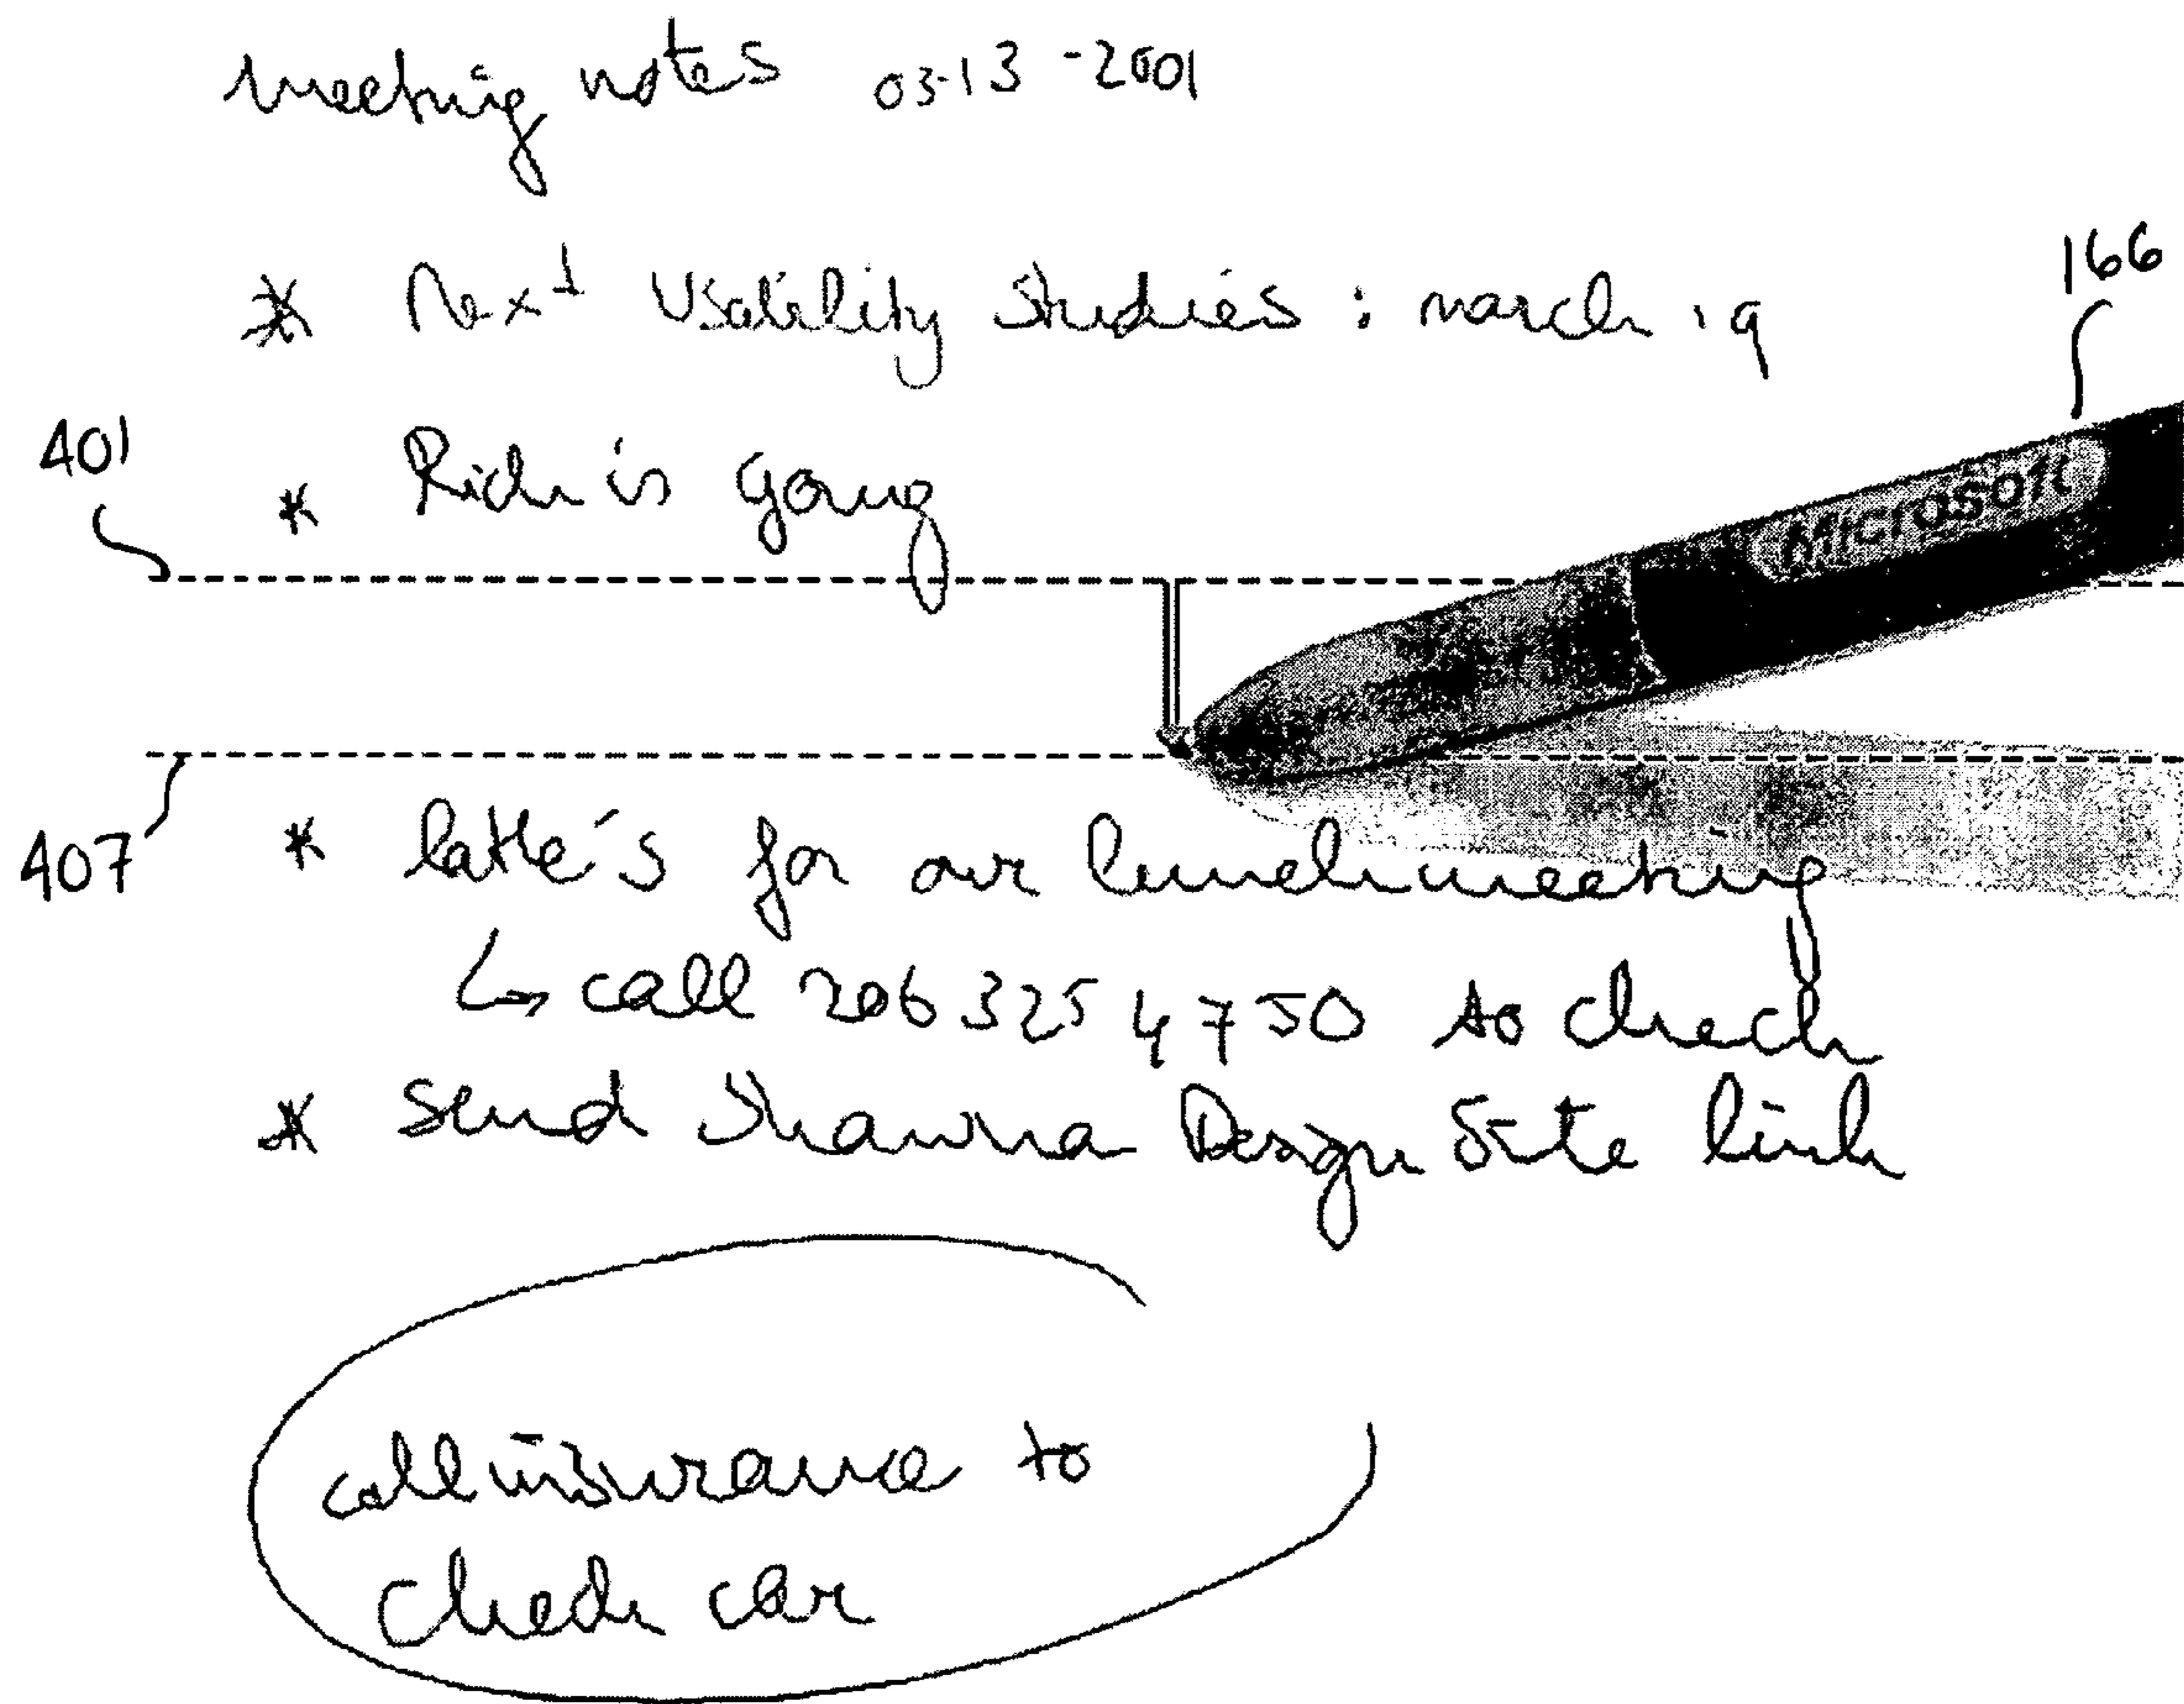 meeting notes 03-13-2001
166
* Next Usability Studies : march 19
401
* Rich is going
Microsoft
407
* latte's for our lunch meeting
↳ call 206 325 4750 to check
* Send Shawna Design Site link
call insurance to
check car